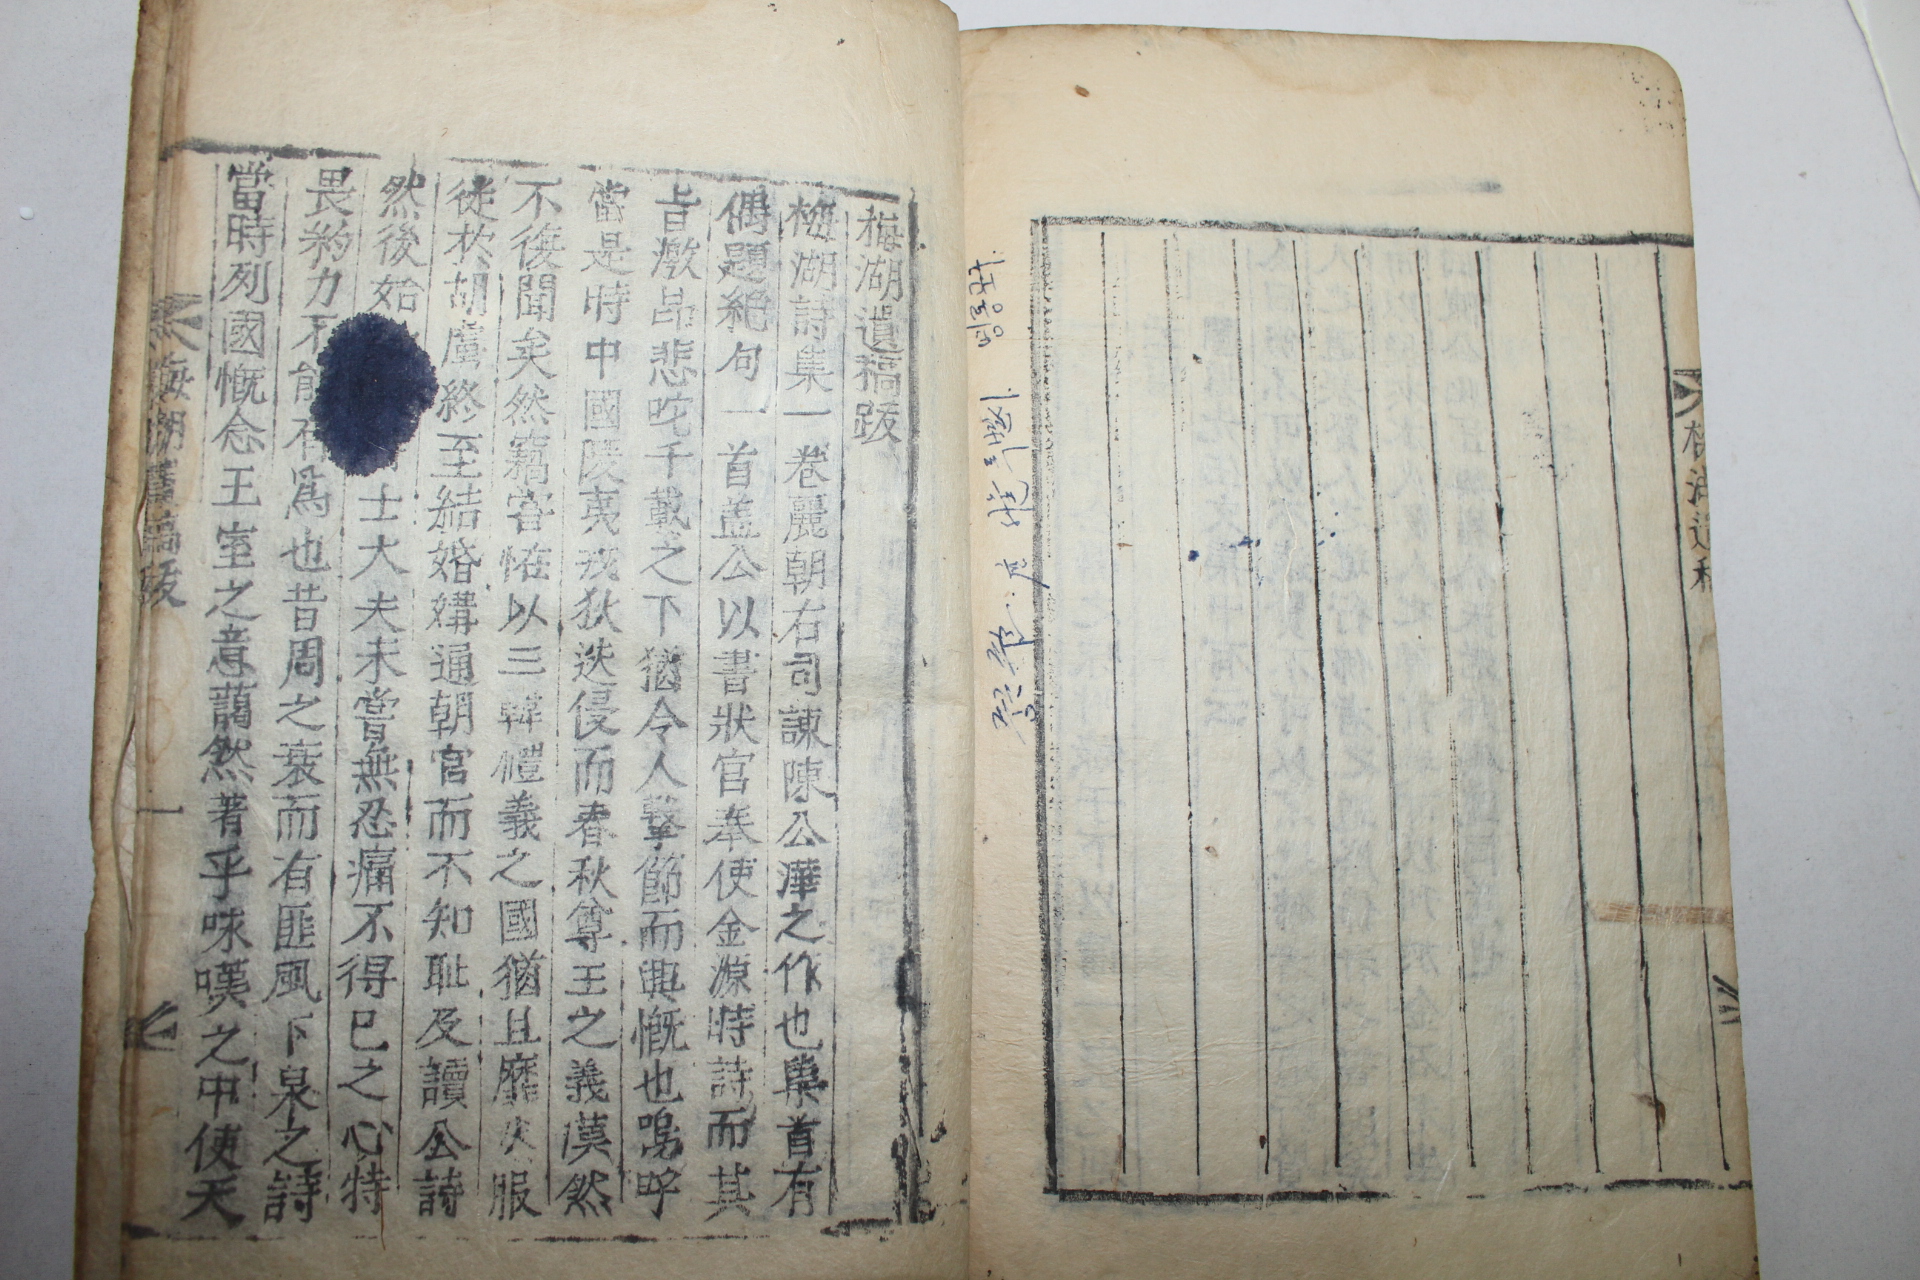 梅湖遺稿跋
梅湖詩集一卷麗朝右司諫陳公澕之作也集首有
偶題絶句一首盖公以書狀官奉使金源時詩而其
旨激昂悲咤千載之下猶令人擊節而興慨也嗚呼
當是時中國陵夷戎狄迭侵而春秋尊王之義漠然
不復聞矣然竊嘗恠以三韓禮義之國猶且靡然服
從於胡虜終至結婚媾通朝宮而不知恥及讀公詩
然後始 士大夫未嘗無忍痛不得已之心特
畏約力不能有爲也昔周之衰而有匪風下泉之詩
當時列國慨念王室之意藹然著乎咏嘆之中使天
梅湖遺稿跋
一